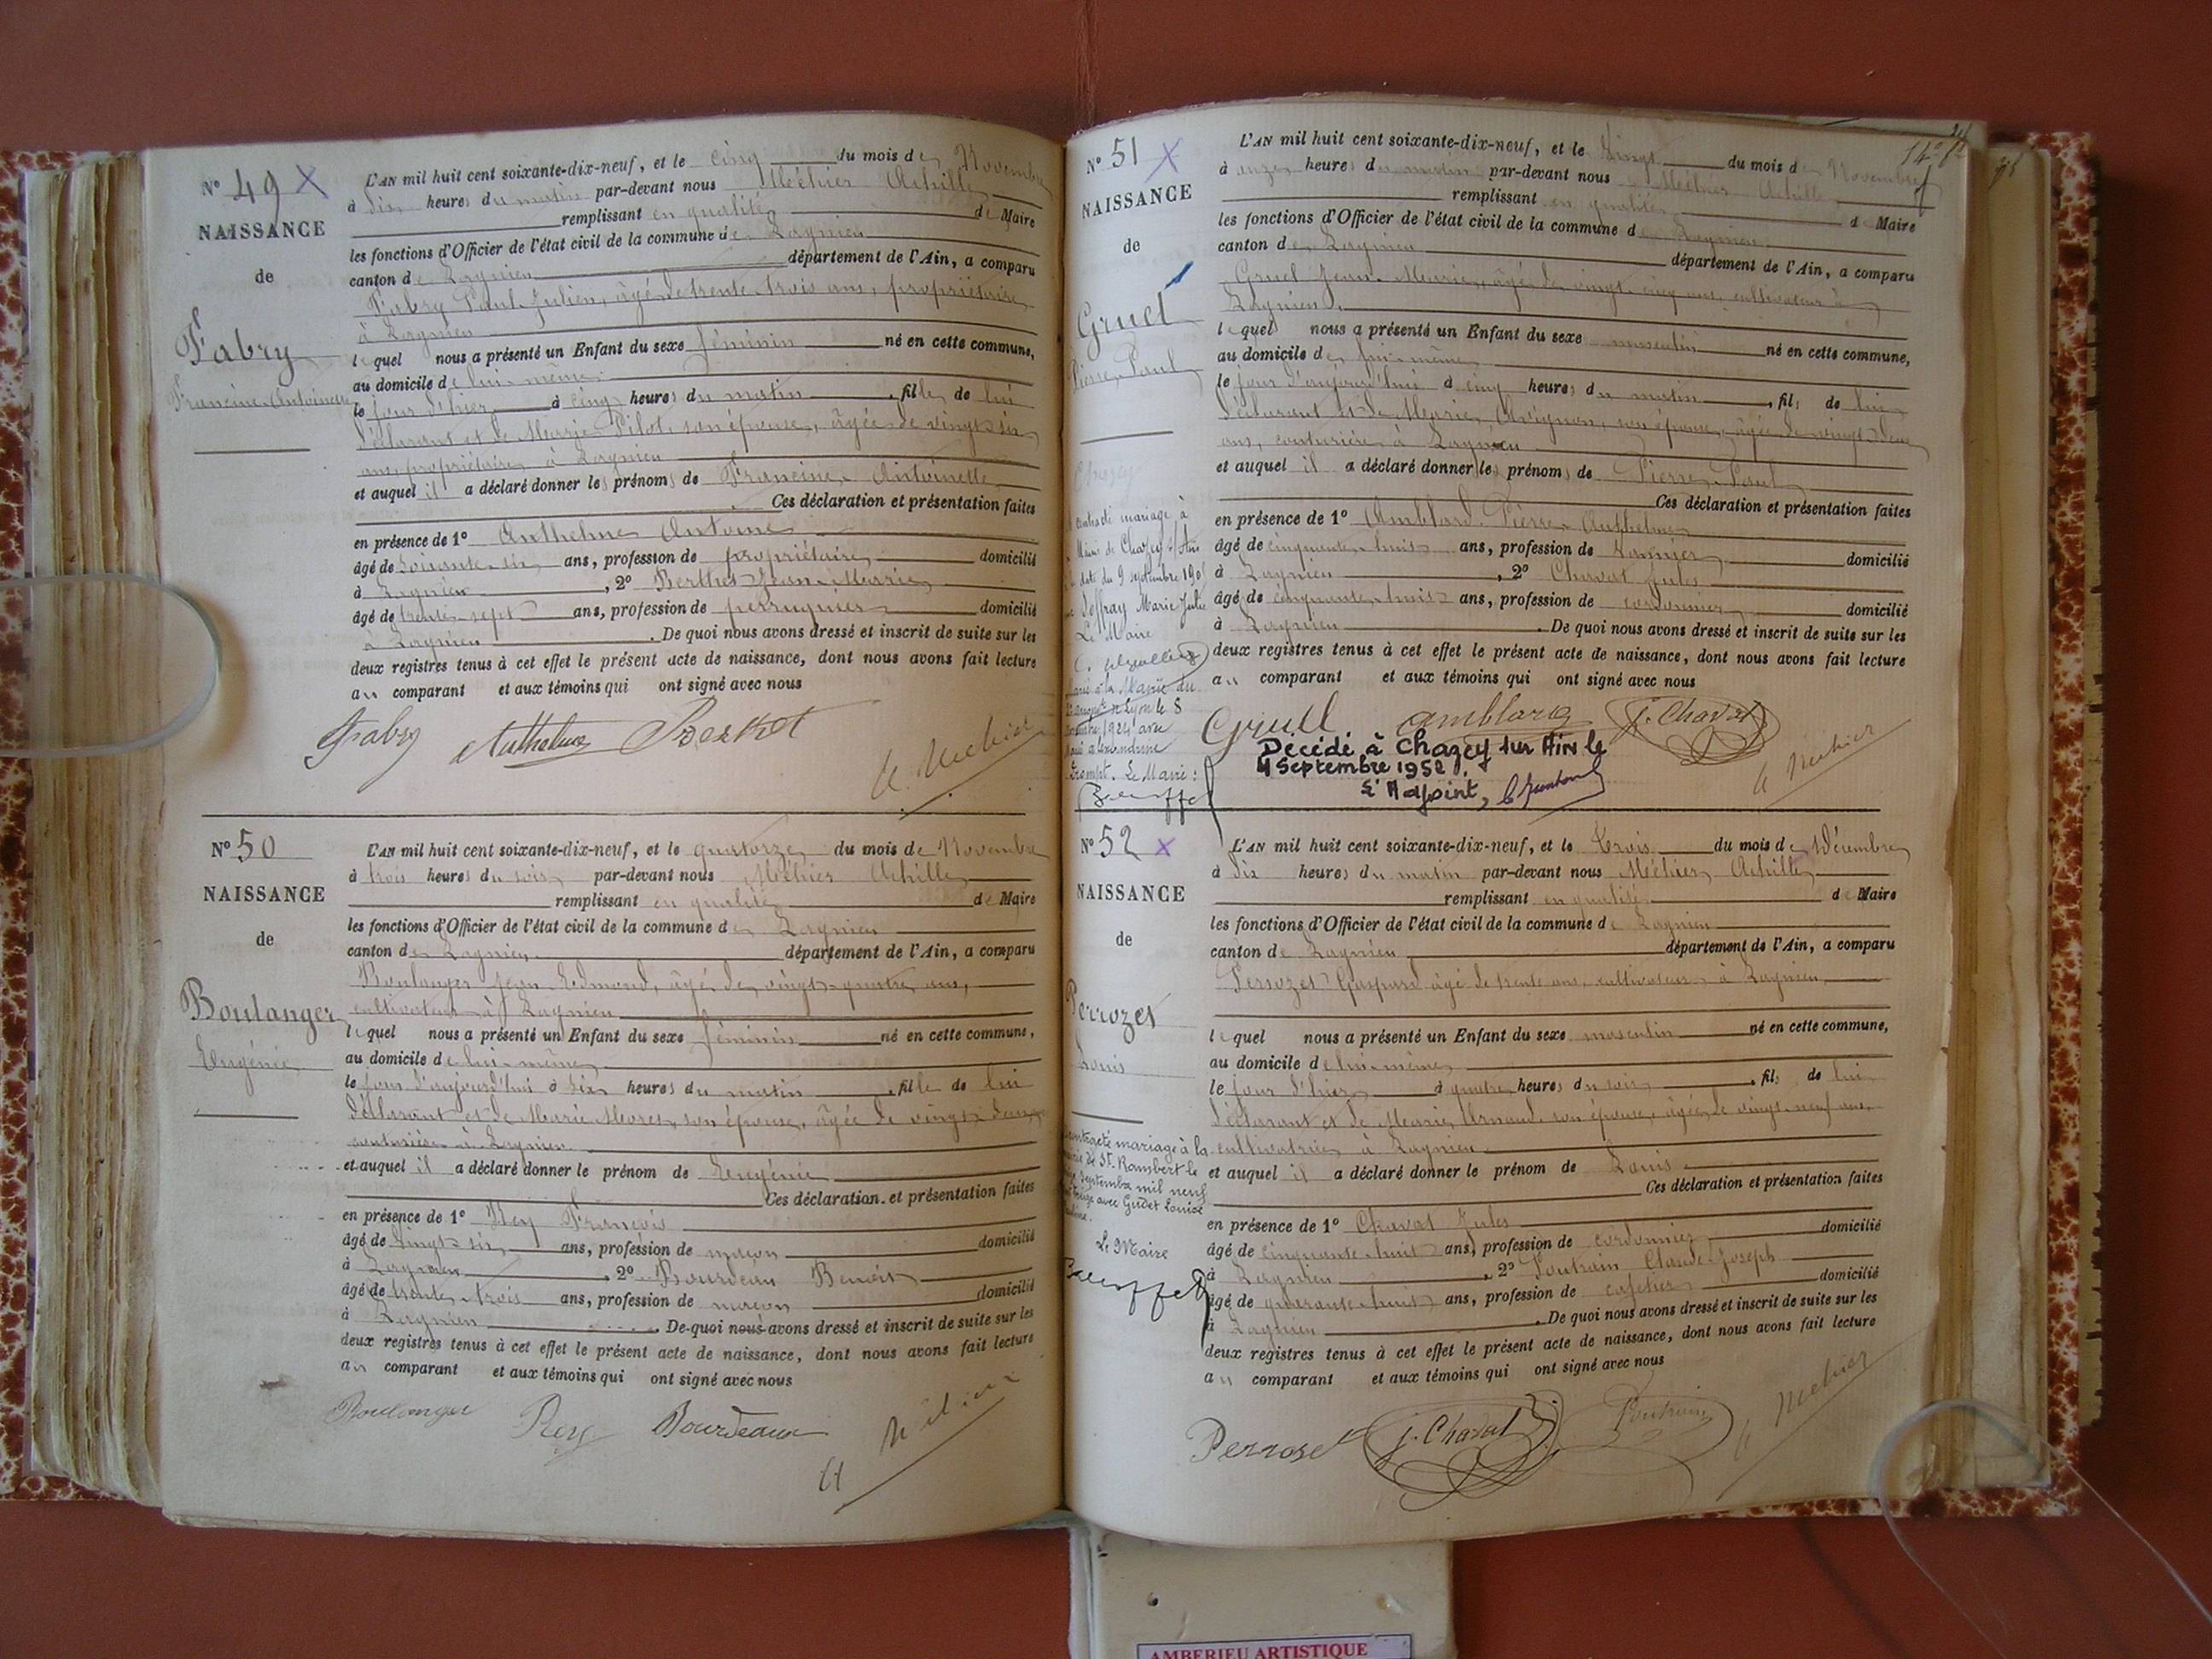 N° 49 X
NAISSANCE
de
Fabry
Francine Antoinette
L'AN mil huit cent soixante-dix-neuf, et le cinq du mois de Novembre
à dix heures du matin par-devant nous Méhier Achille
remplissant en qualité de Maire
les fonctions d'Officier de l'état civil de la commune de Lagnieu
canton de Lagnieu département de l'Ain, a comparu
Fabry Paul Julien, âgé de trente trois ans, propriétaire
à Lagnieu
lequel nous a présenté un Enfant du sexe féminin né en cette commune,
au domicile de lui-même
le jour d'hier à cinq heures du matin, fille de lui
déclarant et de Marie Pilot, son épouse, âgée de vingt six
ans, propriétaire à Lagnieu
et auquel il a déclaré donner les prénoms de Francine Antoinette
Ces déclaration et présentation faites
en présence de 1° Anthelme Antoine
âgé de soixante six ans, profession de propriétaire domicilié
à Lagnieu, 2° Berthet Jean-Marie
âgé de trente sept ans, profession de perruquier domicilié
à Lagnieu. De quoi nous avons dressé et inscrit de suite sur les
deux registres tenus à cet effet le présent acte de naissance, dont nous avons fait lecture
au comparant et aux témoins qui ont signé avec nous
Fabry Anthelme Berthet A Méhier
N° 50
NAISSANCE
de
Boulanger
Eugénie
L'AN mil huit cent soixante-dix-neuf, et le quatorze du mois de Novembre
à trois heures du soir par-devant nous Méhier Achille
remplissant en qualité de Maire
les fonctions d'Officier de l'état civil de la commune de Lagnieu
canton de Lagnieu département de l'Ain, a comparu
Boulanger Jean Edmond, âgé de vingt-quatre ans,
cultivateur à Lagnieu
lequel nous a présenté un Enfant du sexe féminin né en cette commune,
au domicile de lui-même
le jour d'aujourd'hui à six heures du matin, fille de lui
déclarant et de Marie Morel, son épouse, âgée de vingt-deux
couturière à Lagnieu
et auquel il a déclaré donner le prénom de Eugénie
Ces déclaration et présentation faites
en présence de 1° Rey François
âgé de vingt-six ans, profession de maçon domicilié
à Lagnieu, 2° Bourdeau Benoit
âgé de trente-trois ans, profession de maçon domicilié
à Lagnieu. De quoi nous avons dressé et inscrit de suite sur les
deux registres tenus à cet effet le présent acte de naissance, dont nous avons fait lecture
au comparant et aux témoins qui ont signé avec nous
Boulanger Rey Bourdeaux A Méhier
N° 51 X
NAISSANCE
de
Gruel
Pierre Paul
mariage à
Mairie de Chazey s/ Ain
date du 9 septembre 190
Joffray Marie Julie
Le Maire
à la Mairie du
Lyon le 8
1924 avec
Alexandrine
Le Maire :
L'AN mil huit cent soixante-dix-neuf, et le vingt du mois de Novembre
à onze heures du matin par-devant nous Méhier Achille
remplissant en qualité de Maire
les fonctions d'Officier de l'état civil de la commune de Lagnieu
canton de Lagnieu département de l'Ain, a comparu
Gruel Jean-Marie, âgé de vingt-cinq ans, cultivateur à
Lagnieu
lequel nous a présenté un Enfant du sexe masculin né en cette commune,
au domicile de lui-même
le jour d'aujourd'hui à cinq heures du matin, fils de lui
déclarant et de Marie Avignon, son épouse, âgée de vingt-deux
ans, couturière à Lagnieu
et auquel il a déclaré donner les prénoms de Pierre Paul
Ces déclaration et présentation faites
en présence de 1° Amblard Pierre Anthelme
âgé de cinquante-huit ans, profession de domicilié
à Lagnieu, 2° Chavat Jules
âgé de cinquante-huit ans, profession de cordonnier domicilié
à Lagnieu. De quoi nous avons dressé et inscrit de suite sur les
deux registres tenus à cet effet le présent acte de naissance, dont nous avons fait lecture
au comparant et aux témoins qui ont signé avec nous
Gruel Amblard J. Chavat A Méhier
Décédé à Chazey sur Ain le
4 Septembre 1952.
L'Adjoint,
N° 52 X
NAISSANCE
de
Perrozet
Louis
contracté mariage à la
mairie de St. Rambert le
septembre mil neuf
cent treize avec Gudet Louise
Le Maire
L'AN mil huit cent soixante-dix-neuf, et le trois du mois de Décembre
à dix heures du matin par-devant nous Méhier Achille
remplissant en qualité de Maire
les fonctions d'Officier de l'état civil de la commune de Lagnieu
canton de Lagnieu département de l'Ain, a comparu
Perrozet Gaspard âgé de trente ans, cultivateur à Lagnieu
lequel nous a présenté un Enfant du sexe masculin né en cette commune,
au domicile de lui-même
le jour d'hier à quatre heures du soir, fils de lui
déclarant et de Marie Arnaud, son épouse, âgée de vingt-neuf ans,
cultivatrice à Lagnieu
et auquel il a déclaré donner le prénom de Louis
Ces déclaration et présentation faites
en présence de 1° Chavat Jules
âgé de cinquante-huit ans, profession de cordonnier domicilié
à Lagnieu, 2° Poutrain Claude-Joseph
âgé de quarante-huit ans, profession de cafetier domicilié
à Lagnieu. De quoi nous avons dressé et inscrit de suite sur les
deux registres tenus à cet effet le présent acte de naissance, dont nous avons fait lecture
au comparant et aux témoins qui ont signé avec nous
Perroset J. Chavat Poutrain A Méhier
AMBERIEU ARTISTIQUE